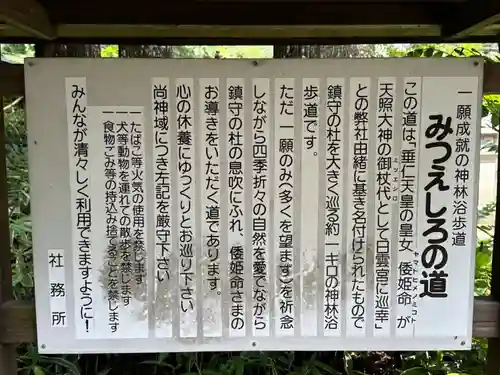 一願成就の神林浴歩道
みつえしろの道
この道は「垂仁天皇の皇女、倭姫命が
ヤマトヒメノミコト
天照大神の御杖代として日雲宮に巡幸」
ミツエシロ
との弊社由緒に基き名付けられたもので
鎮守の杜を大きく巡る約一キロの神林浴
歩道です。
ただ一願のみ(多くを望まず)を祈念
しながら四季折々の自然を愛でながら
鎮守の杜の息吹にふれ、倭姫命さまの
お導きをいただく道であります。
心の休養にゆっくりとお巡り下さい
尚神域につき左記を厳守下さい
一たばこ等火気の使用を禁じます
一犬等動物を連れての散歩を禁じます
一食物ごみ等の持込み捨てることを禁じます
みんなが清々しく利用できますように!
社務所